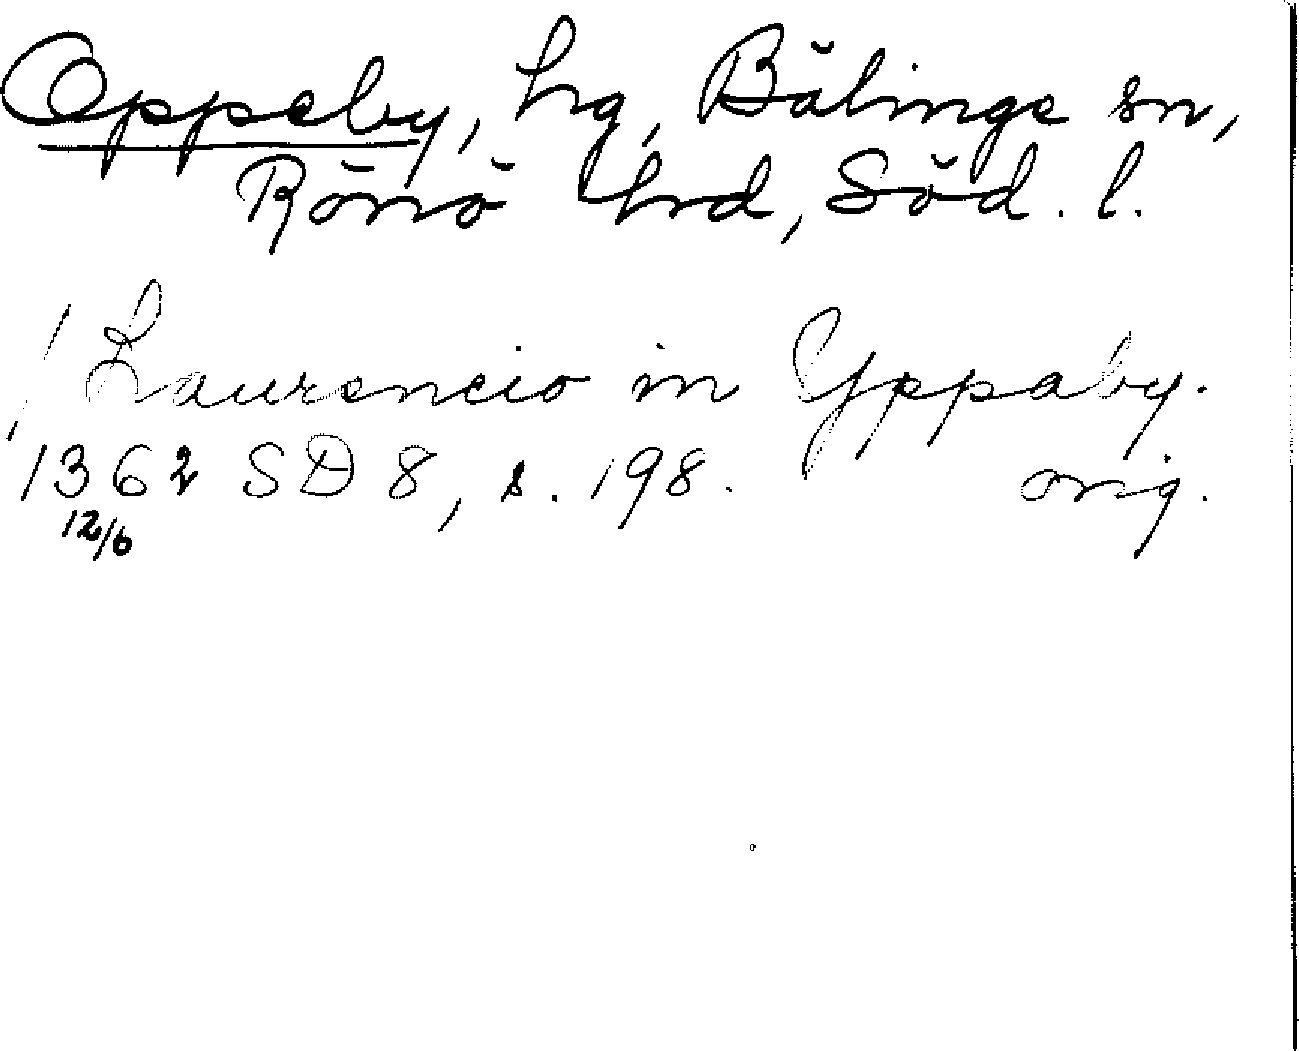 Oppeby, hg, Bälinge sn,
Rönö hrd, Söd. l.
/ Laurencio in Yppaby.
1362 SD 8, s. 198. orig.
12/6